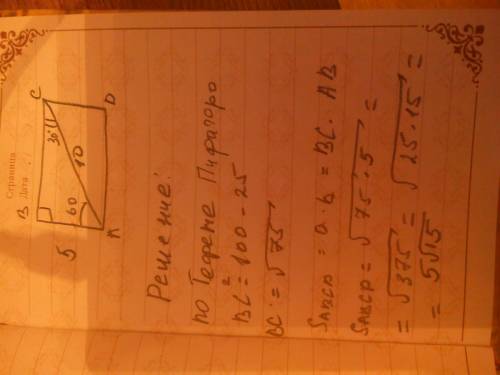 Страница
Дата
B
C
30°
60
10
5
A
D
Решение:
по Теореме Пифагоро
BC² = 100 - 25
BC = √75
SABCD = a · b = BC · AB
SABCD = √75 · 5 =
= √375 = √25 · 15 =
= 5√15